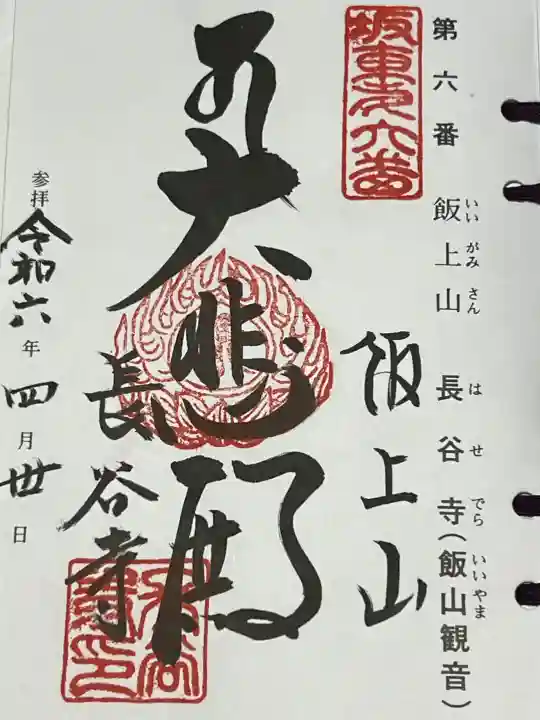 第六番 飯上山 長谷寺(飯山観音)
いいがみさん はせでら いいやま
坂東第六番
飯上山
大悲殿
長谷寺
参拝 令和六年四月卅日